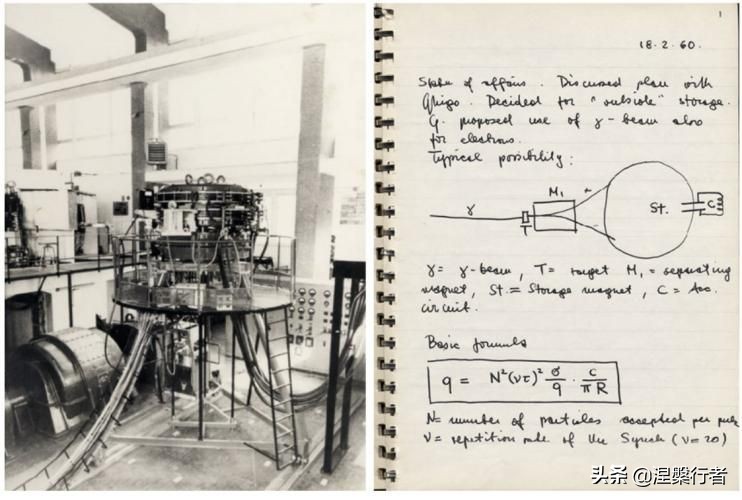 1
18.2.60.
State of affairs. Discussed plan with
Ghigo. Decided for "outside" storage.
G. proposed use of γ-beam also
for electrons.
Typical possibility:
γ
T
M₁
-
St.
C
γ = γ-beam, T = target M₁ = separating
magnet, St. = Storage magnet, C = Acc.
circuit.
Basic formula
q = N²(ντ)² σ/q · c/πR
N = number of particles accepted per pulse
ν = repetition rate of the Synch (ν = 20)
头条 @涅槃行者